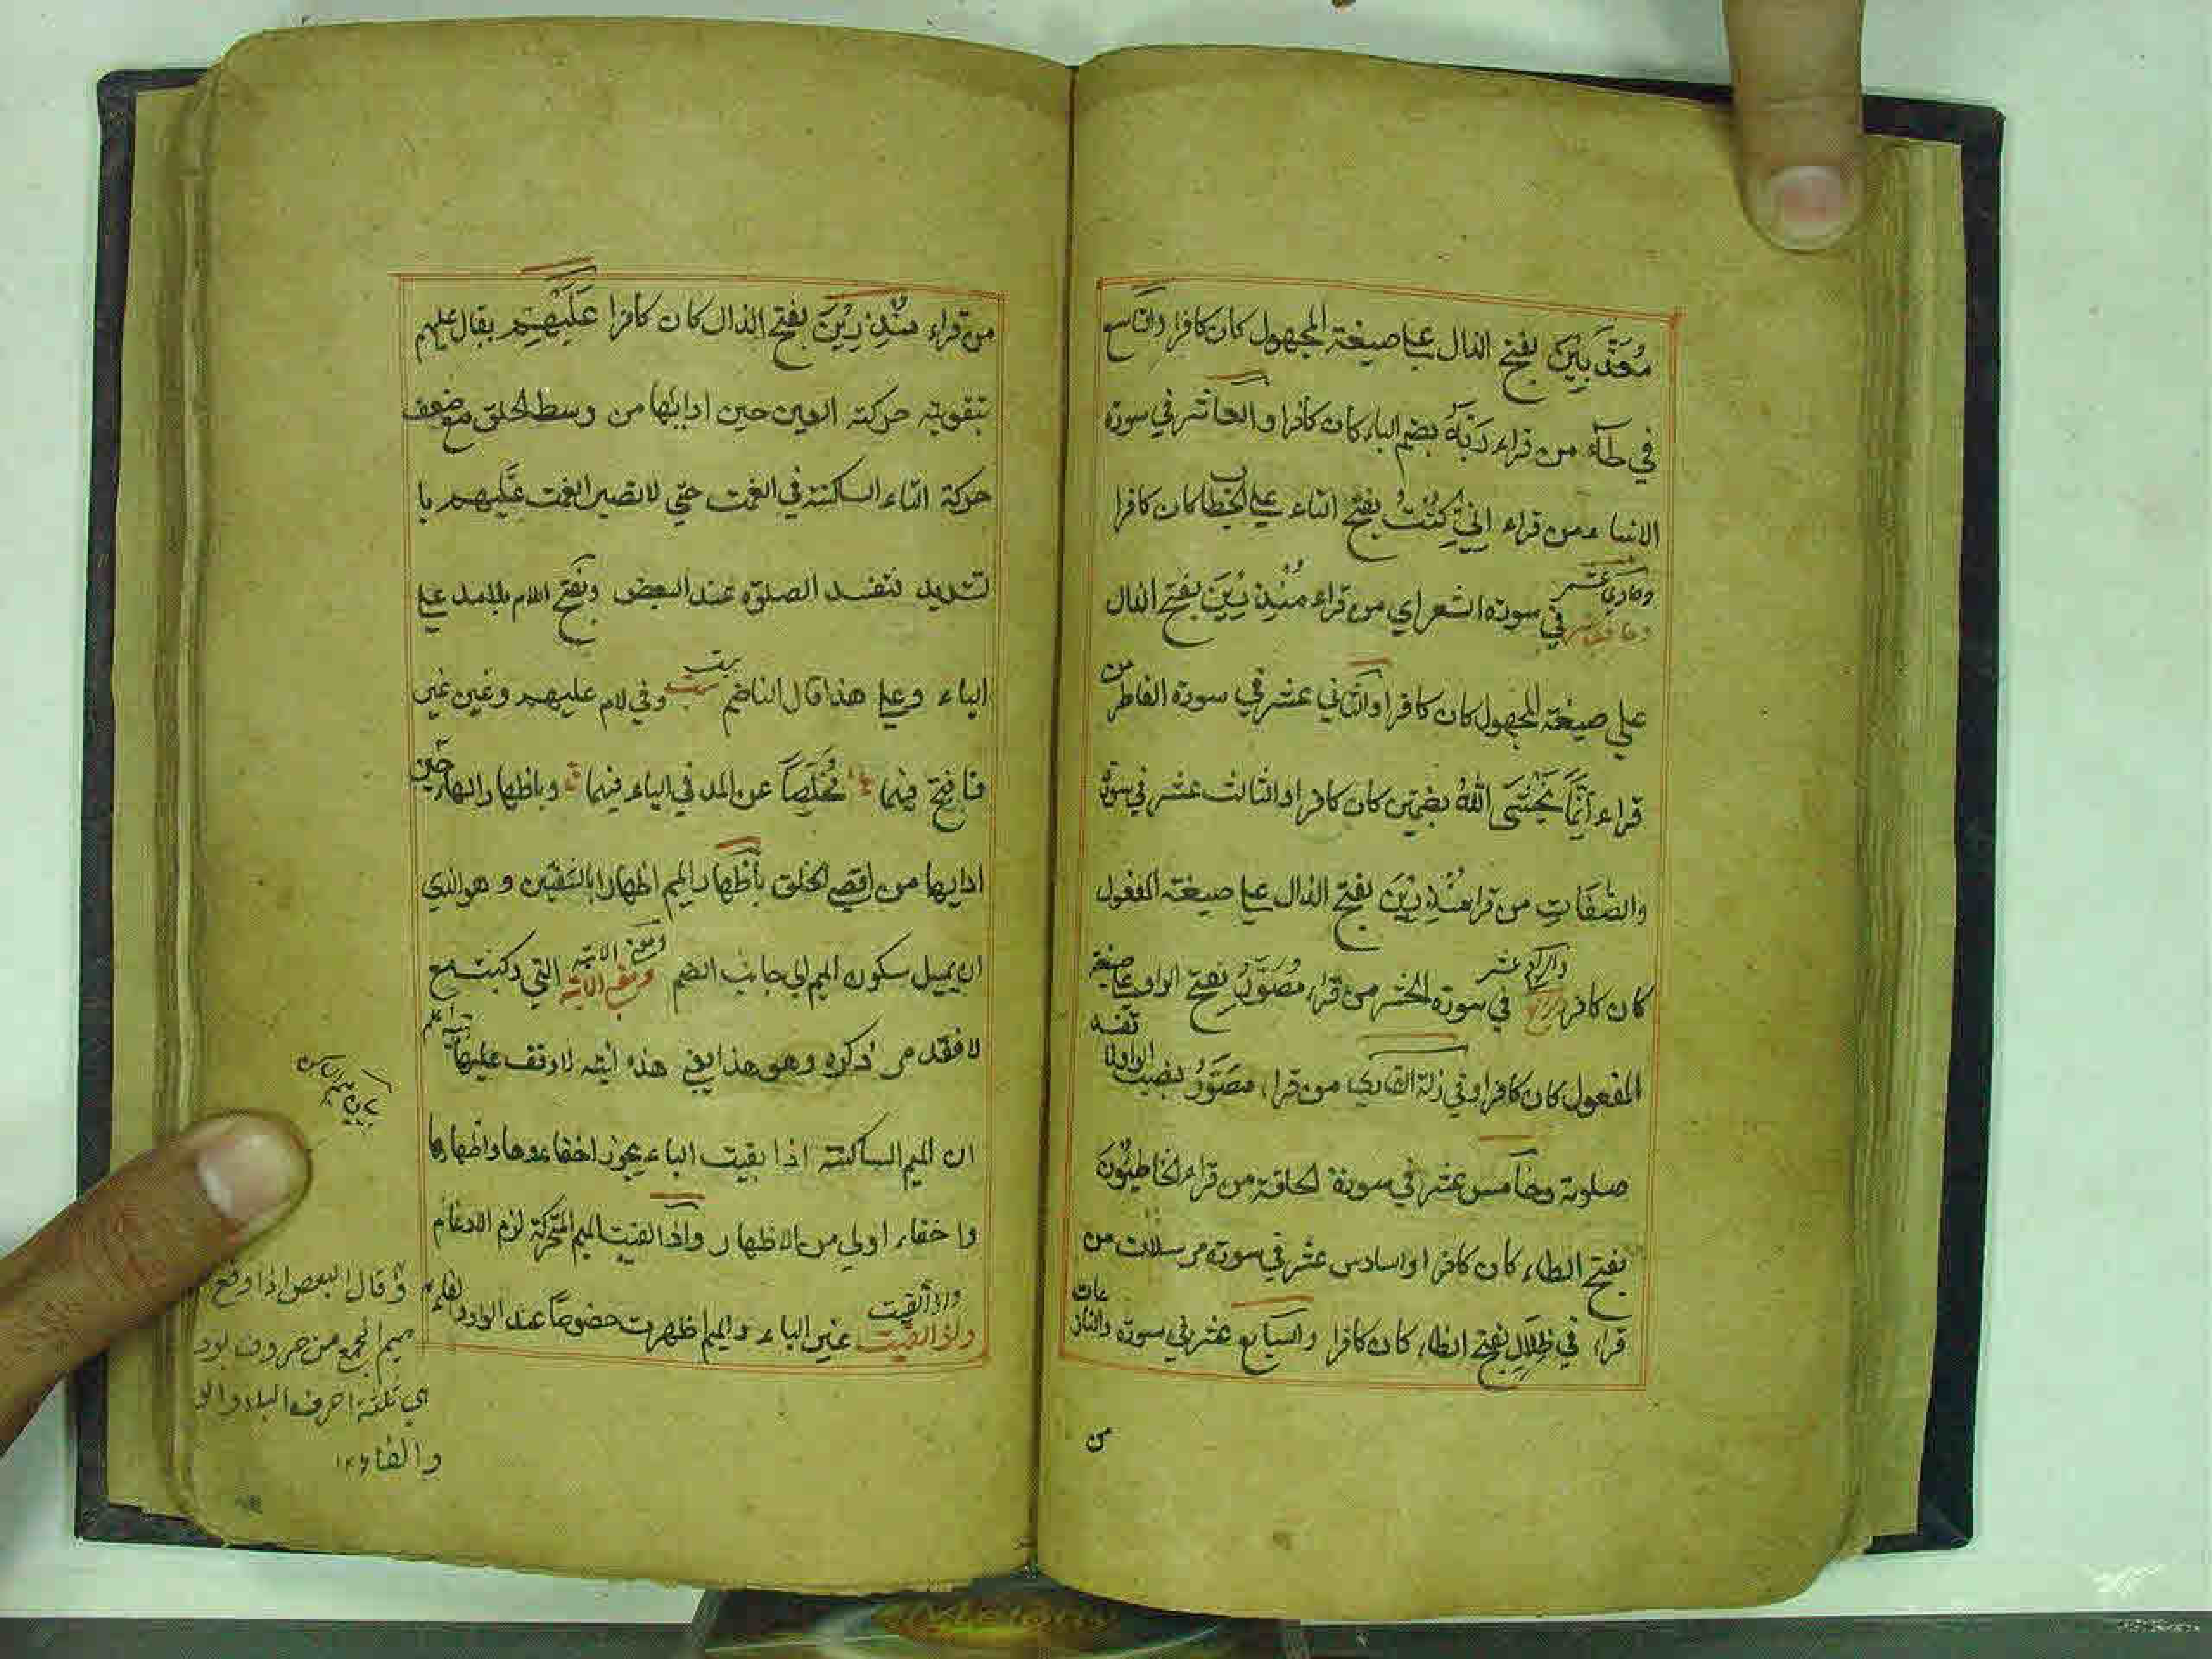 مُعَذَّبِيْنَ بفتح الذال علي صيغة المجهول كان كافرا والتاسع
في طاء من قراء رَبُّهُ بضم الباء كان كافرا والعاشر في سورة
الانبياء من قراء اِنِّي كُنْتَ بفتح التاء علي الخطاب كان كافرا
وحادي عشر في سورة الشعراي من قراء مُنْذَرِيْنَ بفتح الذال
علي صيغة المجهول كان كافرا والثاني عشر في سورة الفاطر من
قراء اِنَّمَا يَخْشَى اللهُ بضمتين كان كافرا والثالث عشر في سورة
والصّٰفّات من قرا مُنْذَرِيْنَ بفتح الذال علي صيغة المفعول
كان كافر والرابع عشر في سورة الحشر من قراء مُصَوَّرُ بفتح الواو علي صيغة
المفعول كان كافرا وفي زلة القاري من قراء مصَوَّرُ بنصب الواو لا تفسد
صلوته وخامس عشر في سورة الحاقة من قراء الخاطئون
بفتح الطاء كان كافرا واسادس عشر في سورة مرسلات من
قراء في ظِلَلٍ بفتح الظاء كان كافرا والسابع عشر في سورة والنازعات
من
من قراء مُنْذَرِيْنَ بفتح الذال كان كافرا عَلَيْهِمْ يقال عليهم
بتقوية حركة العين حين ادايها من وسط الحلق مع ضعف
حركة التاء الساكنة في انعمت حتي لا تصير انعمت عليهم با
لتشديد فتفسد الصلوة عند البعض وبفتح اللام بلا مد علي
الياء وعلي هذا قال الناضم بيت وفي لام عليهم وغين غير
فافتح فيما مُخَلِّصًا عن المد في الياء فيهما وباظهار الهاء حين
ادايها من اقصي الحلق باظهار الميم اظهارا بالشفتين وهو الذي
ان يميل سكون الميم الي جانب الضم وبعض الائمة التي ركبت مع
لا فقد مر ذكره وهو هذا يعني هذه ايته لا وقف عليها تنبيه اعلم
ان الميم الساكنة اذا بقيت الباء يجوز اخفاءوها واظهارها
واخفاء اولي من الاظهار واذا القيت الميم المتحركة لزم الادغام
واذا القيت غير الباء والميم اظهرت خصوصا عند الواو والفاء
بيان ميم الساكن
وقال البعض اذا وقع
ميم الجمع من حروف بود
اي ثلثة احرف الباء والو
والفاء ١٢